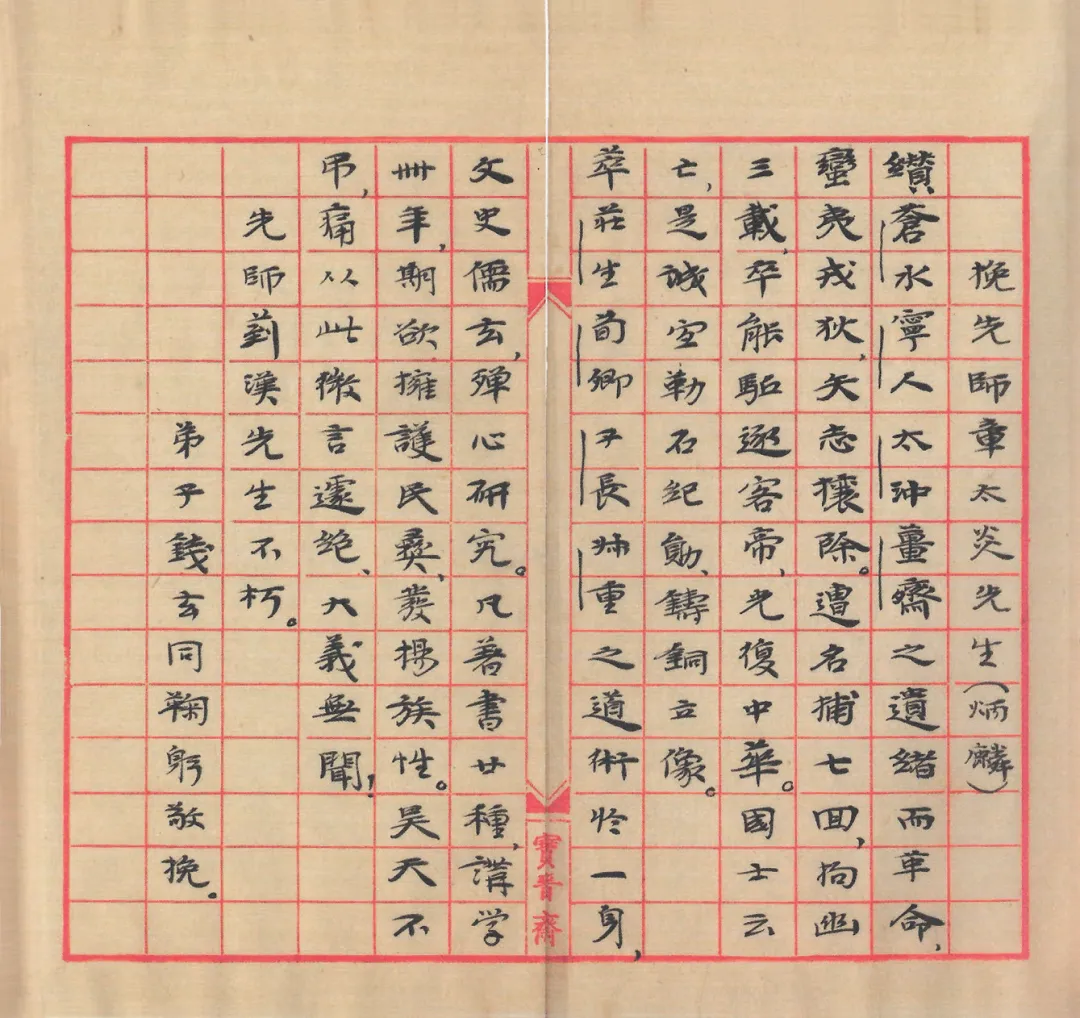 挽先師章太炎先生(炳麟)
纘蒼水寧人太沖薑齋之遺緒而革命,
蠻夷戎狄,矢志攘除。遭名捕七囬,拘幽
三載,卒能駈逐客帝,光復中華。國士云
亡,是誠宜勒石紀勛、鑄銅立像。
萃莊生荀卿子長叔重之道術於一身,
寶晉齋
文史儒玄,殫心研究。凡著書廿種,講学
卌年,期欲擁護民彝、發揚族性。昊天不
弔,痛从此微言遽絕、大義無聞!
先師菿漢先生不朽。
弟子錢玄同鞠躬敬挽。